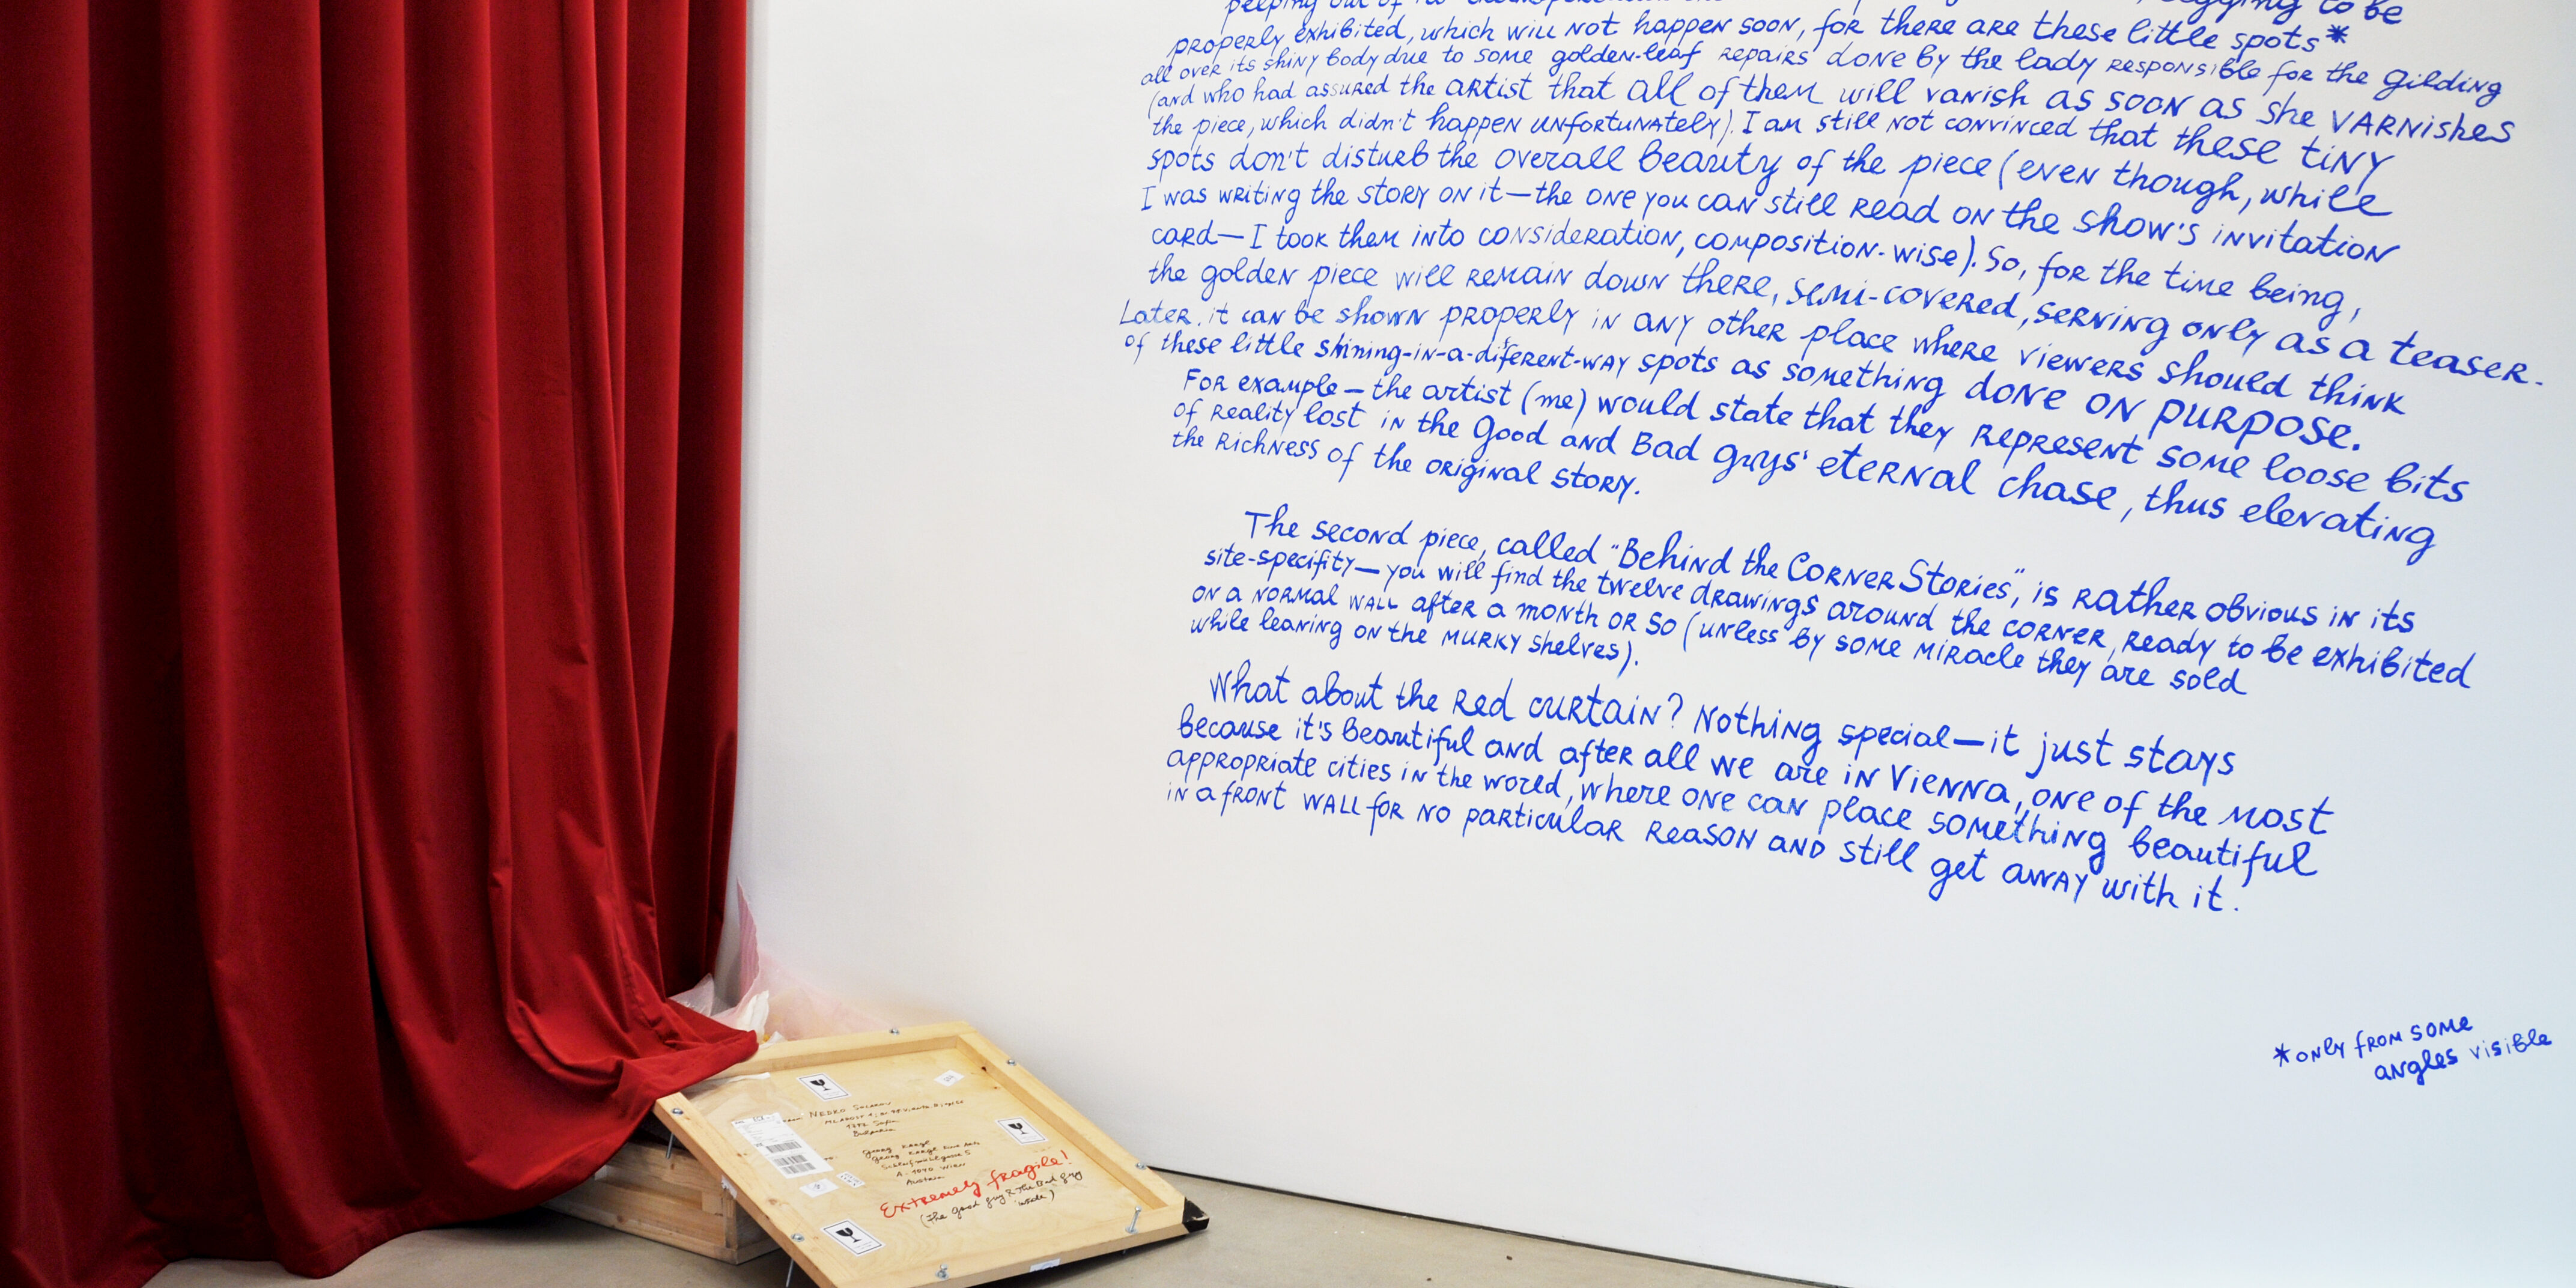 peeping out of its to be
properly exhibited, which will not happen soon, for there are these little spots*
all over its shiny body due to some golden-leaf repairs done by the lady responsible for the gilding
(and who had assured the artist that all of them will vanish as soon as she varnishes
the piece, which didn't happen unfortunately). I am still not convinced that these tiny
spots don't disturb the overall beauty of the piece (even though, while
I was writing the story on it—the one you can still read on the show's invitation
card—I took them into consideration, composition-wise). So, for the time being,
the golden piece will remain down there, semi-covered, serving only as a teaser.
Later, it can be shown properly in any other place where viewers should think
of these little shining-in-a-diferent-way spots as something done on purpose.
For example—the artist (me) would state that they represent some loose bits
of reality lost in the Good and Bad guys' eternal chase, thus elevating
the richness of the original story.
The second piece, called "Behind the Corner Stories", is rather obvious in its
site-specifity—you will find the twelve drawings around the corner, ready to be exhibited
on a normal wall after a month or so (unless by some miracle they are sold
while leaning on the murky shelves).
What about the red curtain? Nothing special—it just stays
because it's beautiful and after all we are in Vienna, one of the most
appropriate cities in the world, where one can place something beautiful
in a front wall for no particular reason and still get away with it.
*only from some
angles visible
NEDKO Solakov
Sofia
Bulgaria
Georg Kargl
Georg Kargl Fine Arts
Schleifmühlgasse 5
A-1040 Wien
Austria
Extremely fragile!
(The Good guy & The Bad guy
inside)